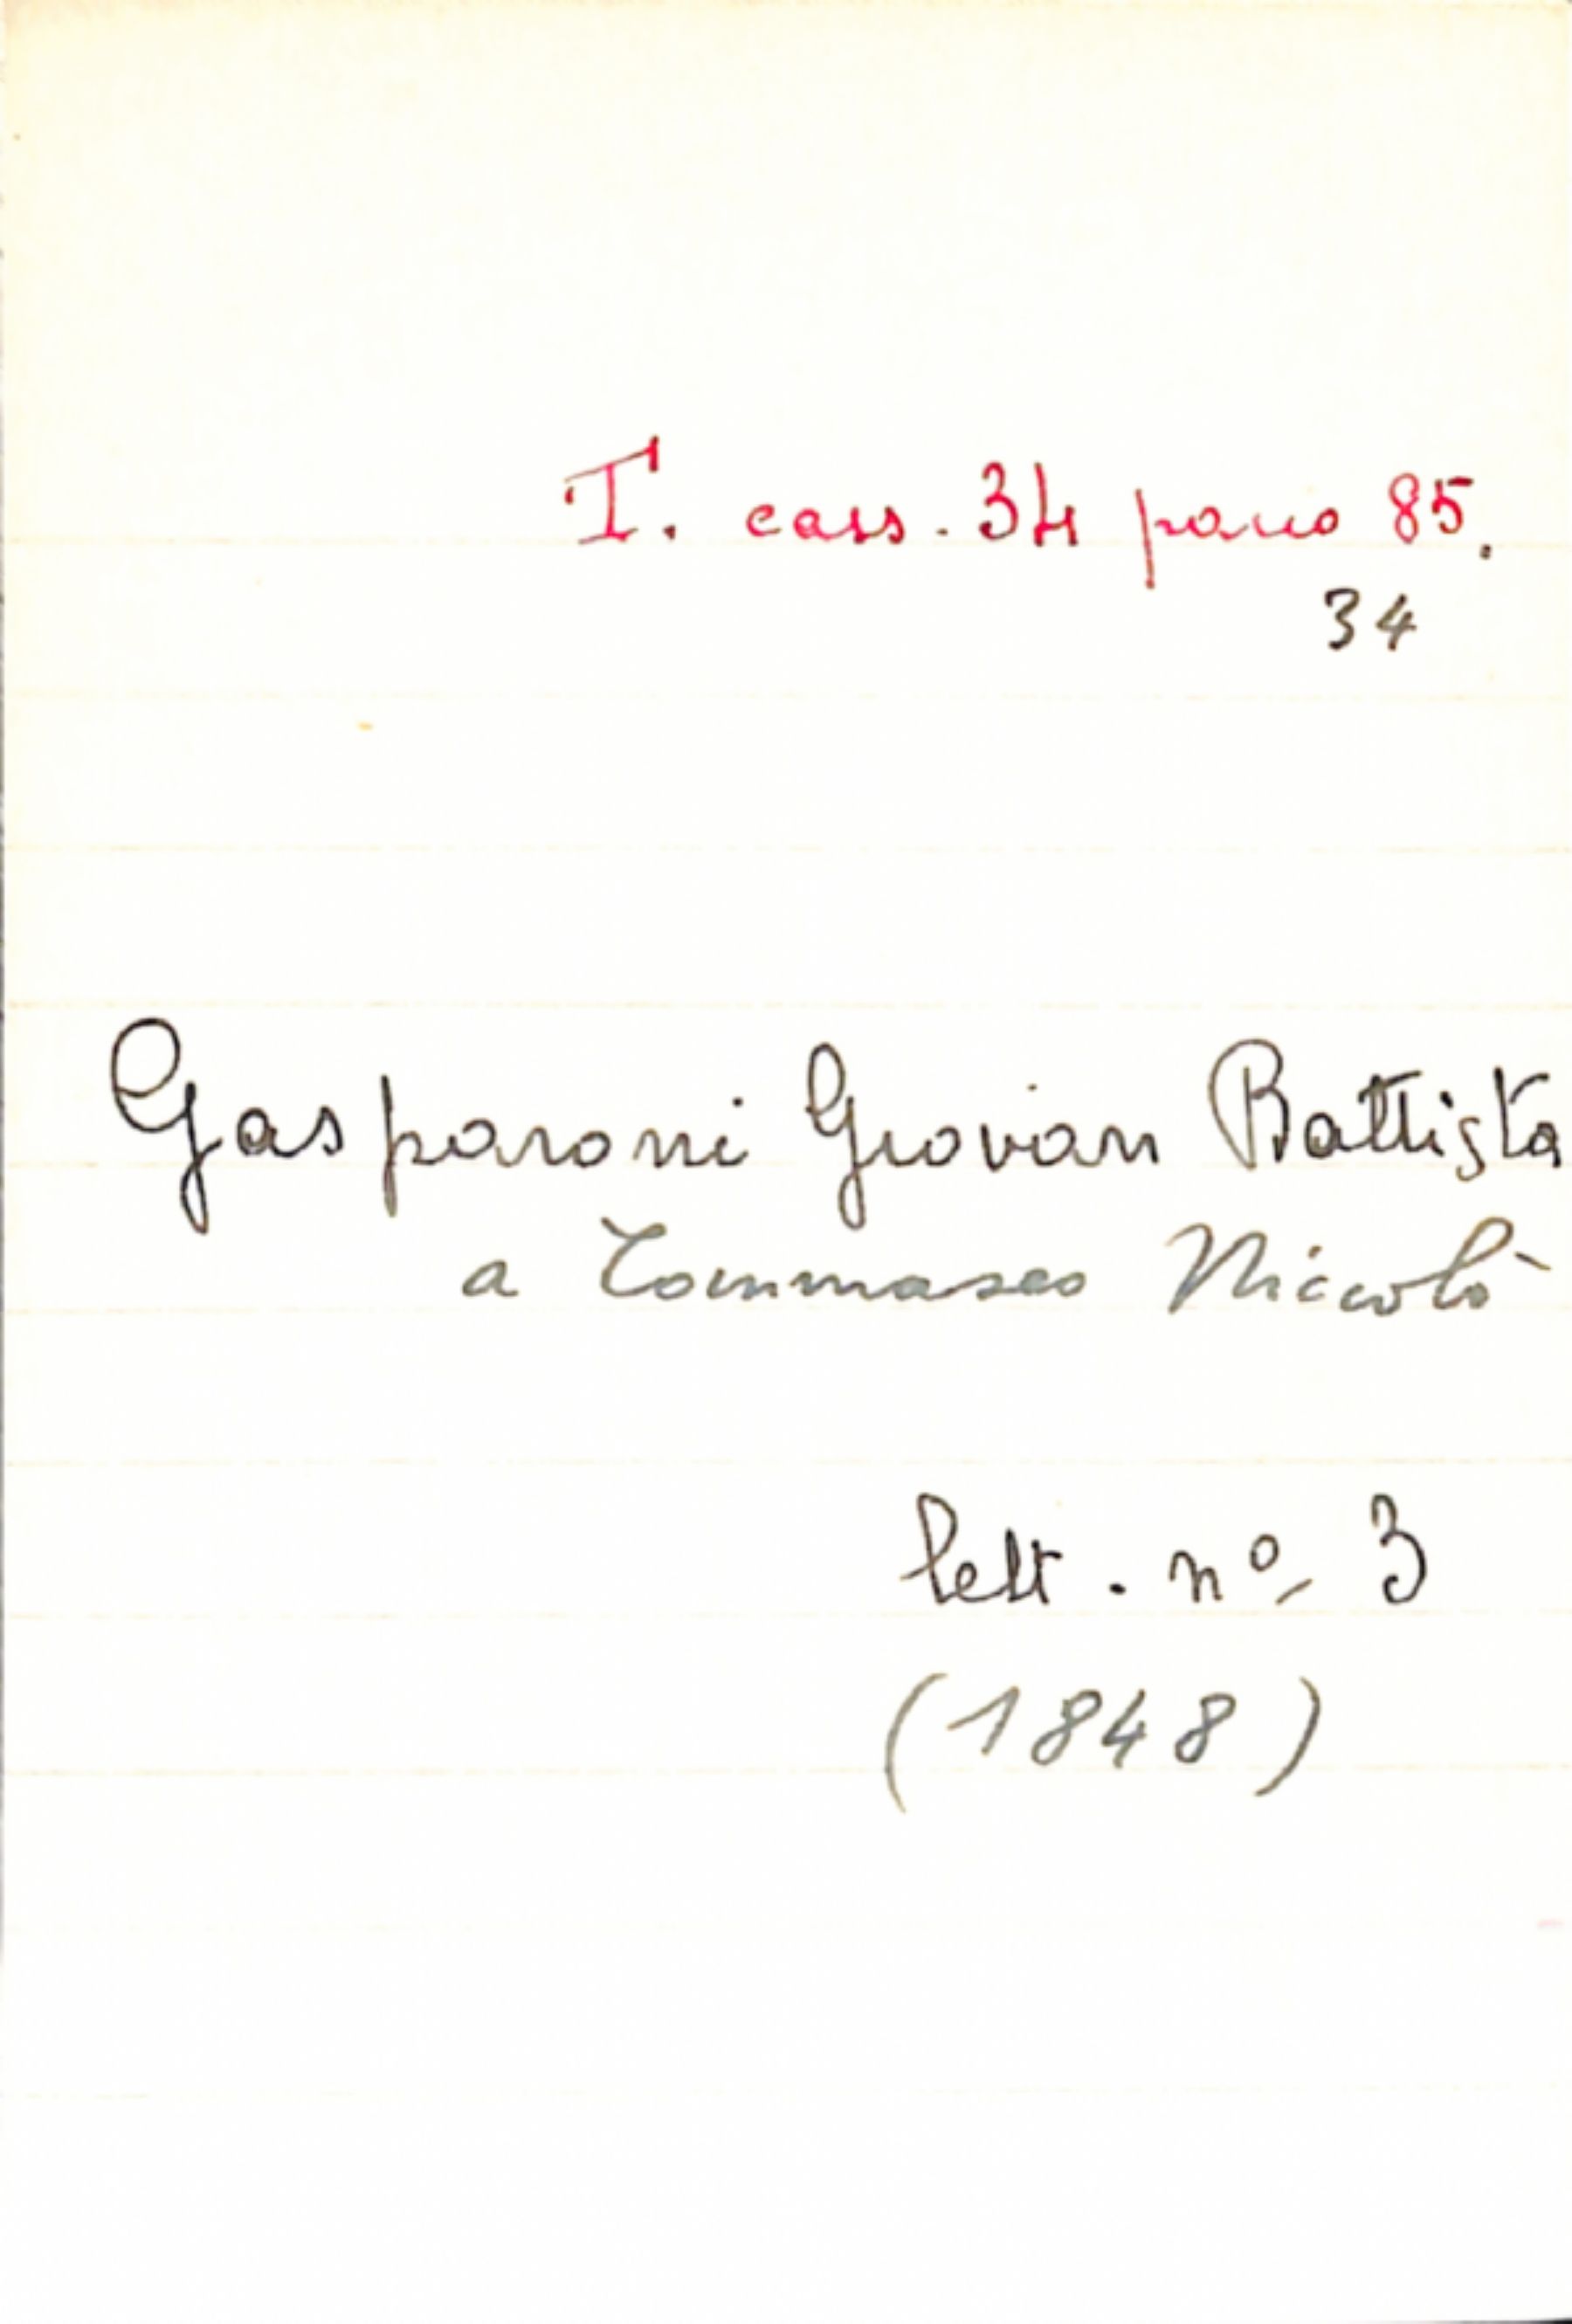 T. cass. 34 pacco 85.
34
Gasparoni Giovan Battista
a Tommaseo Niccolò
lett. nº 3
(1848)